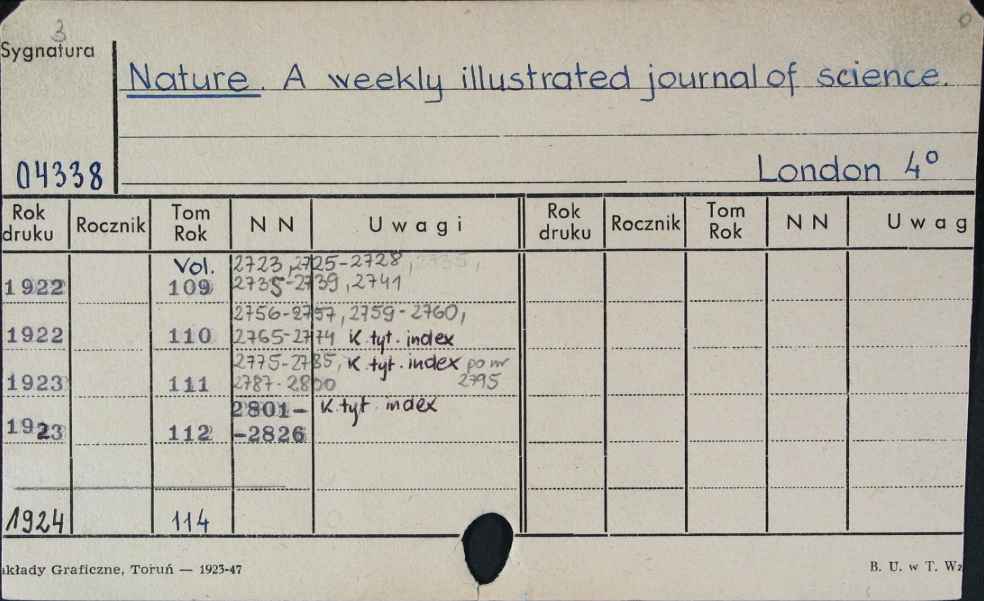 3
Sygnatura
Nature. A weekly illustrated journal of science.
04338
London 4°
Rok druku Rocznik Tom Rok N N Uwagi Rok druku Rocznik Tom Rok N N Uwag
Vol. 2723, 2725-2728, 2735,
1922 109 2735-2739, 2741
2756-2757, 2759-2760,
1922 110 2765-2774 K. tyt. index
2775-2785, K. tyt. index po nr
1923 111 2787-2800 2795
2801- K. tyt. index
1923 112 -2826
1924 114
akłady Graficzne, Toruń — 1923-47
B. U. w T. Wz